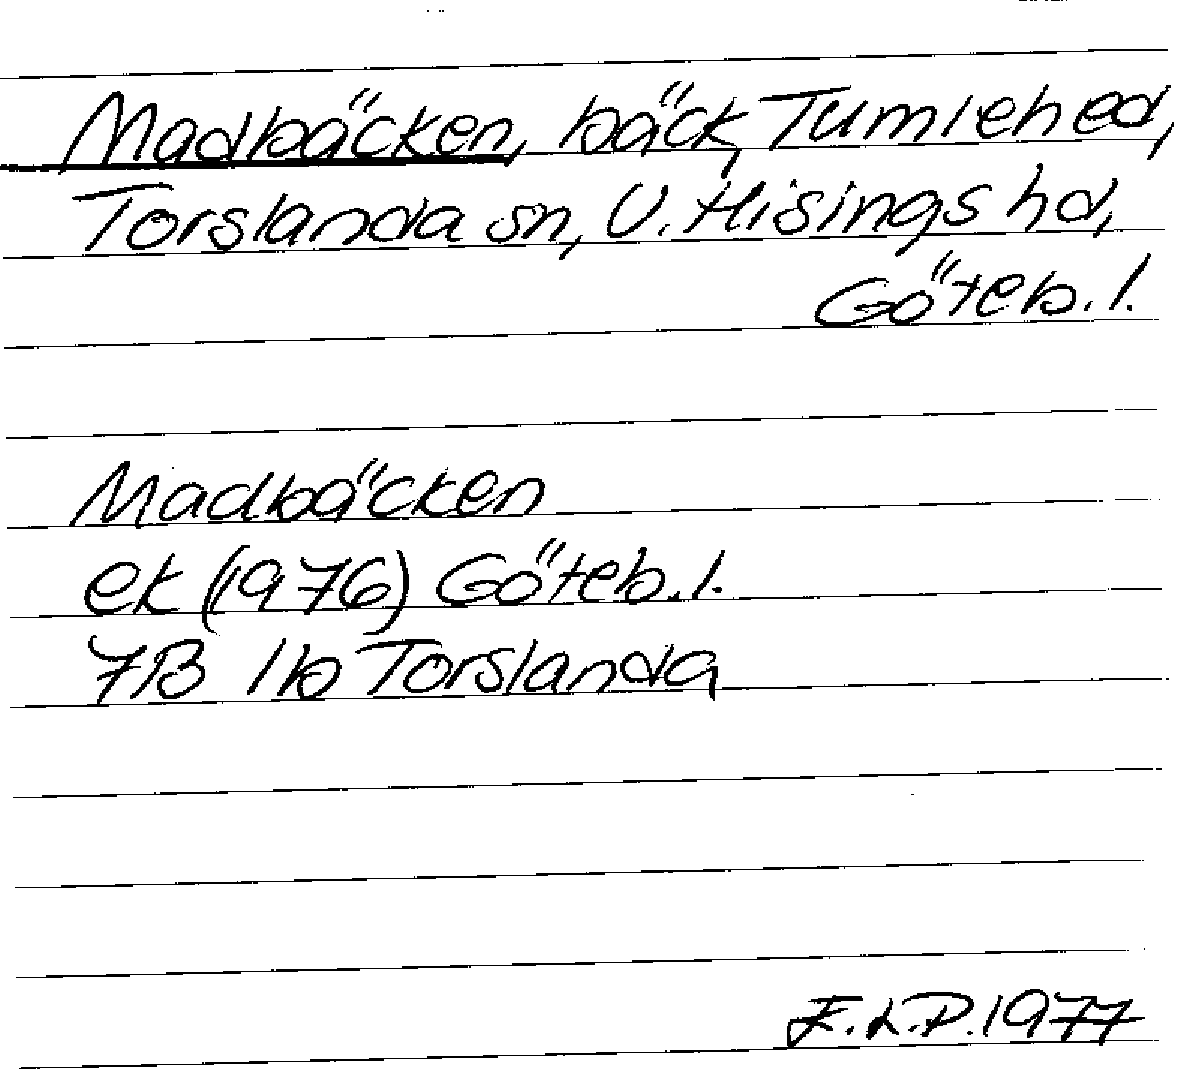 Madbäcken, bäck, Tumlehed,
Torslanda sn, V. Hisings hd,
Göteb. l.
Madbäcken
ek (1976) Göteb. l.
7B 1b Torslanda
E.L.P. 1977